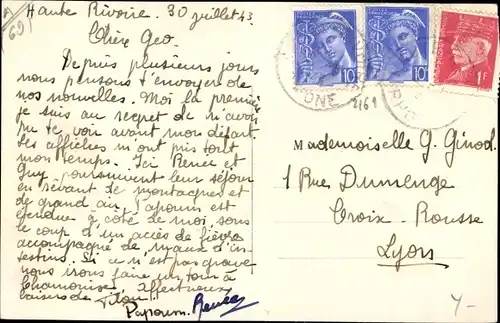 Haute Rivoire. 30 juillet 43
Chère Geo
Depuis plusieurs jours
nous pensons t'envoyer de
nos nouvelles. Moi la première
je suis au regret de n'avoir
pu te voir avant mon départ
les affiches m'ont pris tout
mon temps. Ici Renée et
Guy poursuivent leur séjour
en rêvant de montagnes et
de grand air. Papoum est
étendue à côté de moi, sous
le coup d'un accès de fièvre
accompagné de maux d'in-
testins. Si ce n'est pas grave
nous irons faire un tour à
Chamonix. Affectueux
baisers de
Papoum. Renée
A
69
10c
10c
1F
RHONE
2161
RHO
Mademoiselle G. Ginod.
1 Rue Dumenge
Croix-Rousse
Lyon
4-